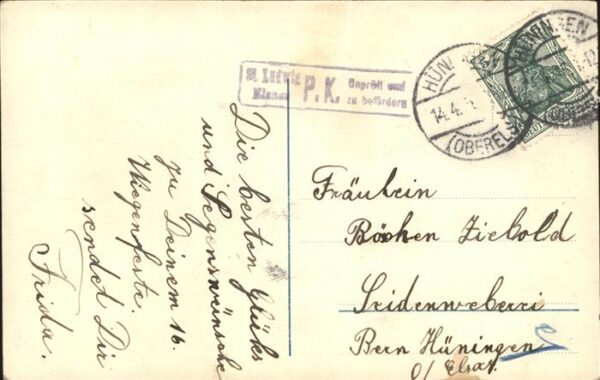 St. Ludwig
P. K.
Geprüft und
zu befördern
HÜNINGEN
14.4.
(OBERELS.)
HÜNINGEN
Die besten Glücks
und Segenswünsche
zu Deinem 16.
Wiegenfeste.
sendet Dir
Frida.
Fräulein
Ziebold
Seidenweberei
Bern Hüningen
o/ Elsaß.